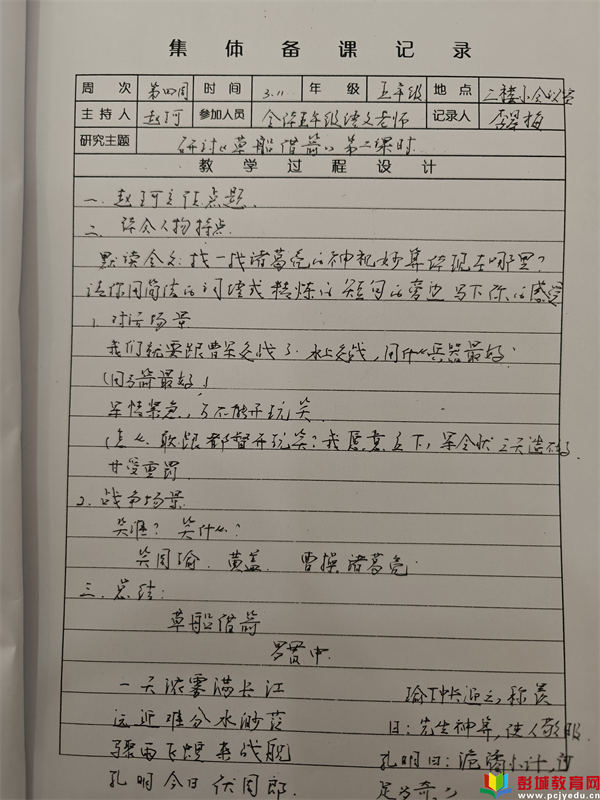 集体备课记录
周次 第四周 时间 3.11 年级 五年级 地点 三楼小会议室
主持人 赵珂 参加人员 全体五年级语文老师 记录人 李翠梅
研究主题 研讨《草船借箭》第二课时
教学过程设计
一、赵珂主任点题。
二、体会人物特点
默读全文:找一找诸葛亮的神机妙算体现在哪里?
请你用简洁的词语或精炼的短句的旁边写下你的感受
1、对话场景
我们就要跟曹军交战了。水上交战,用什么兵器最好
(用弓箭最好)
军情紧急,可不能开玩笑
(怎么敢跟都督开玩笑?我愿意立下军令状 三天造不好
甘受重罚
2、战争场景
笑谁?笑什么?
笑周瑜、黄盖、曹操 诸葛亮
三、总结:
草船借箭
罗贯中
一天浓雾满长江
远近难分水渺茫
骤雨飞蝗来战舰
孔明今日伏周郎
瑜下帐迎之,称羡
曰:先生神算,使人敬服
孔明曰:诡谲小计,何
足为奇?
彭城教育网
www.pcjyedu.cn